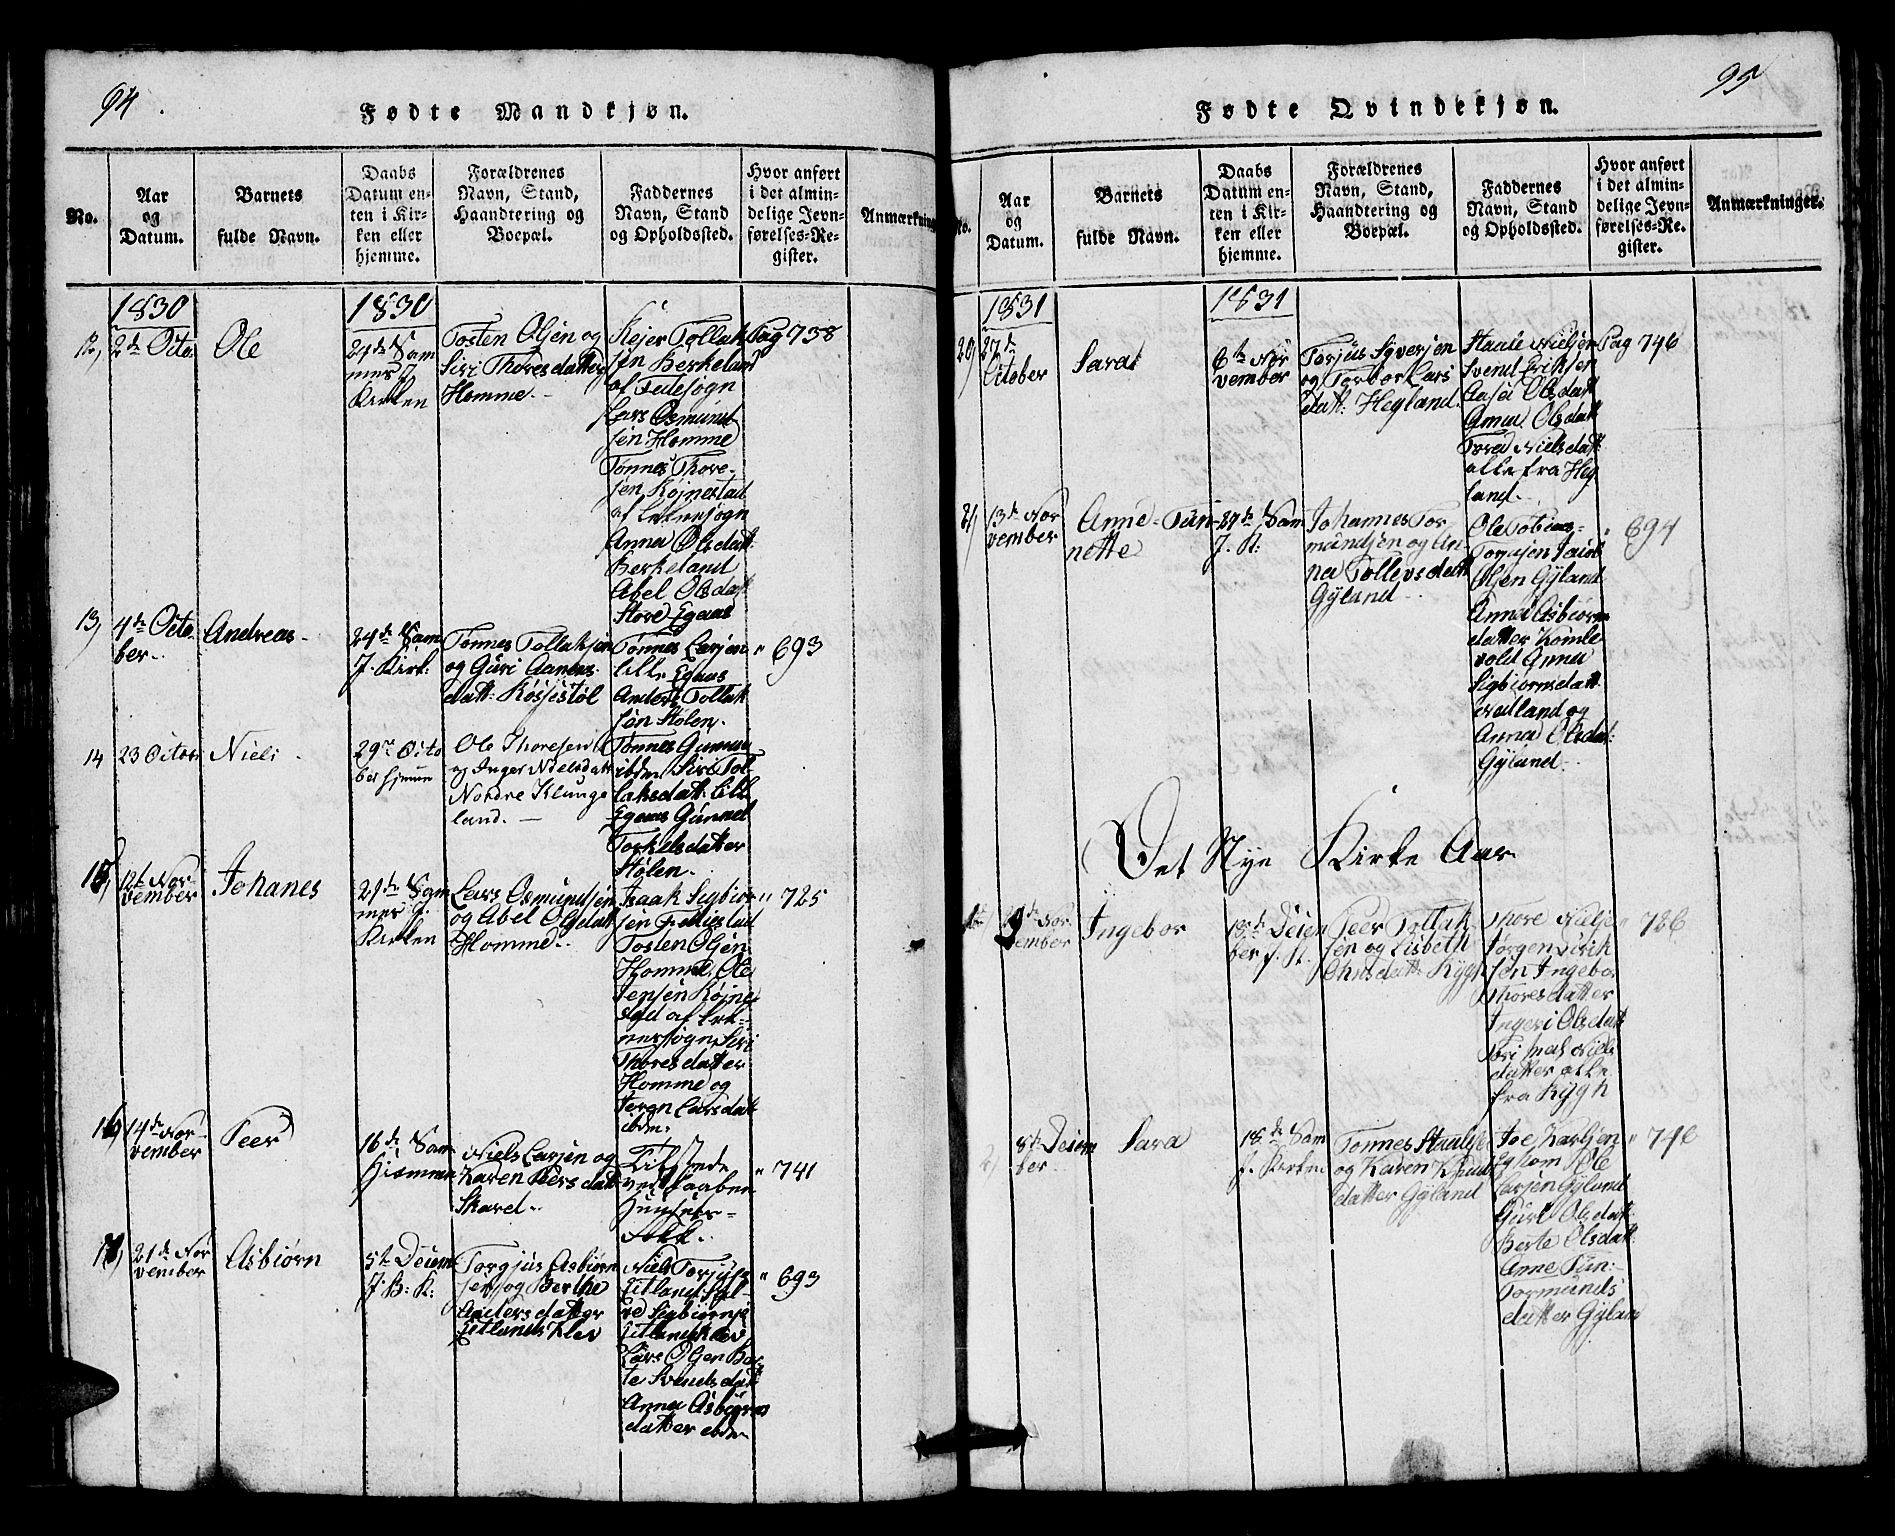 94.
Fødte Mandkjøn.
No.
Aar
og
Datum.
Barnets
fulde Navn.
Daabs
Datum en-
ten i Kir-
ken eller
hjemme.
Forældrenes
Navn, Stand,
Haandtering og
Boepæl.
Faddernes
Navn, Stand
og Opholdssted.
Hvor anført
i det almin-
delige Jevn-
førelses-Re-
gister.
Anmærkning
1830
1830
12,
2de Octo
Ole
21de Sam
mes J
Kirken
Tosten Olsen og
Siri Thoresdatter
Homme. -
Rejer Tollak
sen Berkeland
af Fedesogn
Lars Osmund
sen Homme
Tønnes Thore-
sen Røjnestad
af
Anna Olsdatt:
Berkeland
Abel Olsdatt
Store Egaas
Pag 738
13,
4de Octo
ber..
Andreas-
24de Sam
J. Kirk:
Tønnes Tollaksen
og Guri Aanens
datt: Røsjstøl
Tønnes Larsen
lille Egaas
Anders Tollak
sen Stølen.
" 693
14
23 Octor
Niels
29de Octo
ber hjemme
Ole Thoresen
og Inger Nielsdatt
Nordre Klunge
land. -
Tønnes Gunnu
ibdm Siri Tol-
laksdatt: Lille
Egaas Gunnel
Torkelsdatter
Stølen.
15,
12te Nov
vember
Johanes
21de Sam
mes J.
Kirken
Lars Osmundsen
og Abel Olsdatt
Homme..
Isaak Sigbiør
sen Fedestad
Tosten Olsen
Homme, Ole
Jensen Røjne
stad af
sogn, Siri
Thoresdatter
Homme og
Larsdatt
ibdm.
" 725
16,
14de Nov-
vember
Peer
16de Sam
Hiemme
Niels Larsen og
Karen Peersdatt
Skared..
Tilstede
ved Daaben
" 741
17,
21de Nov
vember
Asbiørn
5te Decem
J. B: K:
Torgjus Asbiørn
sen og Berthe
Anders datter
Eitlands Klev
Niels Torjus
Eitland
Sigbiørns
Eitlandsklev
Lars Olsen Ber-
te Svends datt
Anna Asbiørns
datter ebdm
" 693
95
Fødte Qvindekjøn.
No.
Aar
og
Datum.
Barnets
fulde Navn.
Daabs
Datum en-
ten i Kir-
ken eller
hjemme.
Forældrenes
Navn, Stand,
Haandtering og
Boepæl.
Faddernes
Navn, Stand
og Opholdssted.
Hvor anført
i det almin-
delige Jevn-
førelses-Re-
gister.
Anmærkninger.
1831
1831
20,
27de
October
Sara
6te Nov
vember
Torjus Syversen
og Torbor Lars
datt: Hegland.
Staale Nielsen
Svend Eriksen
Aasa Olsdatt
Anna Olsdatt
Tored Nielsdatt
alle fra Heg
land.
Pag 746
21,
13de Nov
vember
Anne-Tün-
nette
27de Sam
J. K:
Johannes Tor
mundsen og An-
na Tollevsdatt
Gÿland..
Ole Tobias-
Olsen Gÿland
Anna Asbiørns
datter Komle
vold Anna
Sigbiørnsdatt
Netland og
Anna Olsdat:
Gÿland..
" 694
Det Nye Kirke Aar
1,
vember
Ingebor
18de Decem
ber J. K.
Peer Tollak
sen og Lisbeth
datt: Rÿgh
Thore Nielsen
Jørgen Erik
sen Ingebor
Thoresdatter
Ingeri Olsdatt
Niels
datter alle
fra Rygh
726
2,
8de Decem
ber..
Sara
18de Sam
J. Kirken
Tønnes Staalese
og Karen Knud
datter Gÿland
Joe Karlsen
Eghom Ole
Larsen Gÿland
Guri Olsdatt
Berte Olsdatt:
Anne Tün:
Tormunds
datter Gÿland
" 746